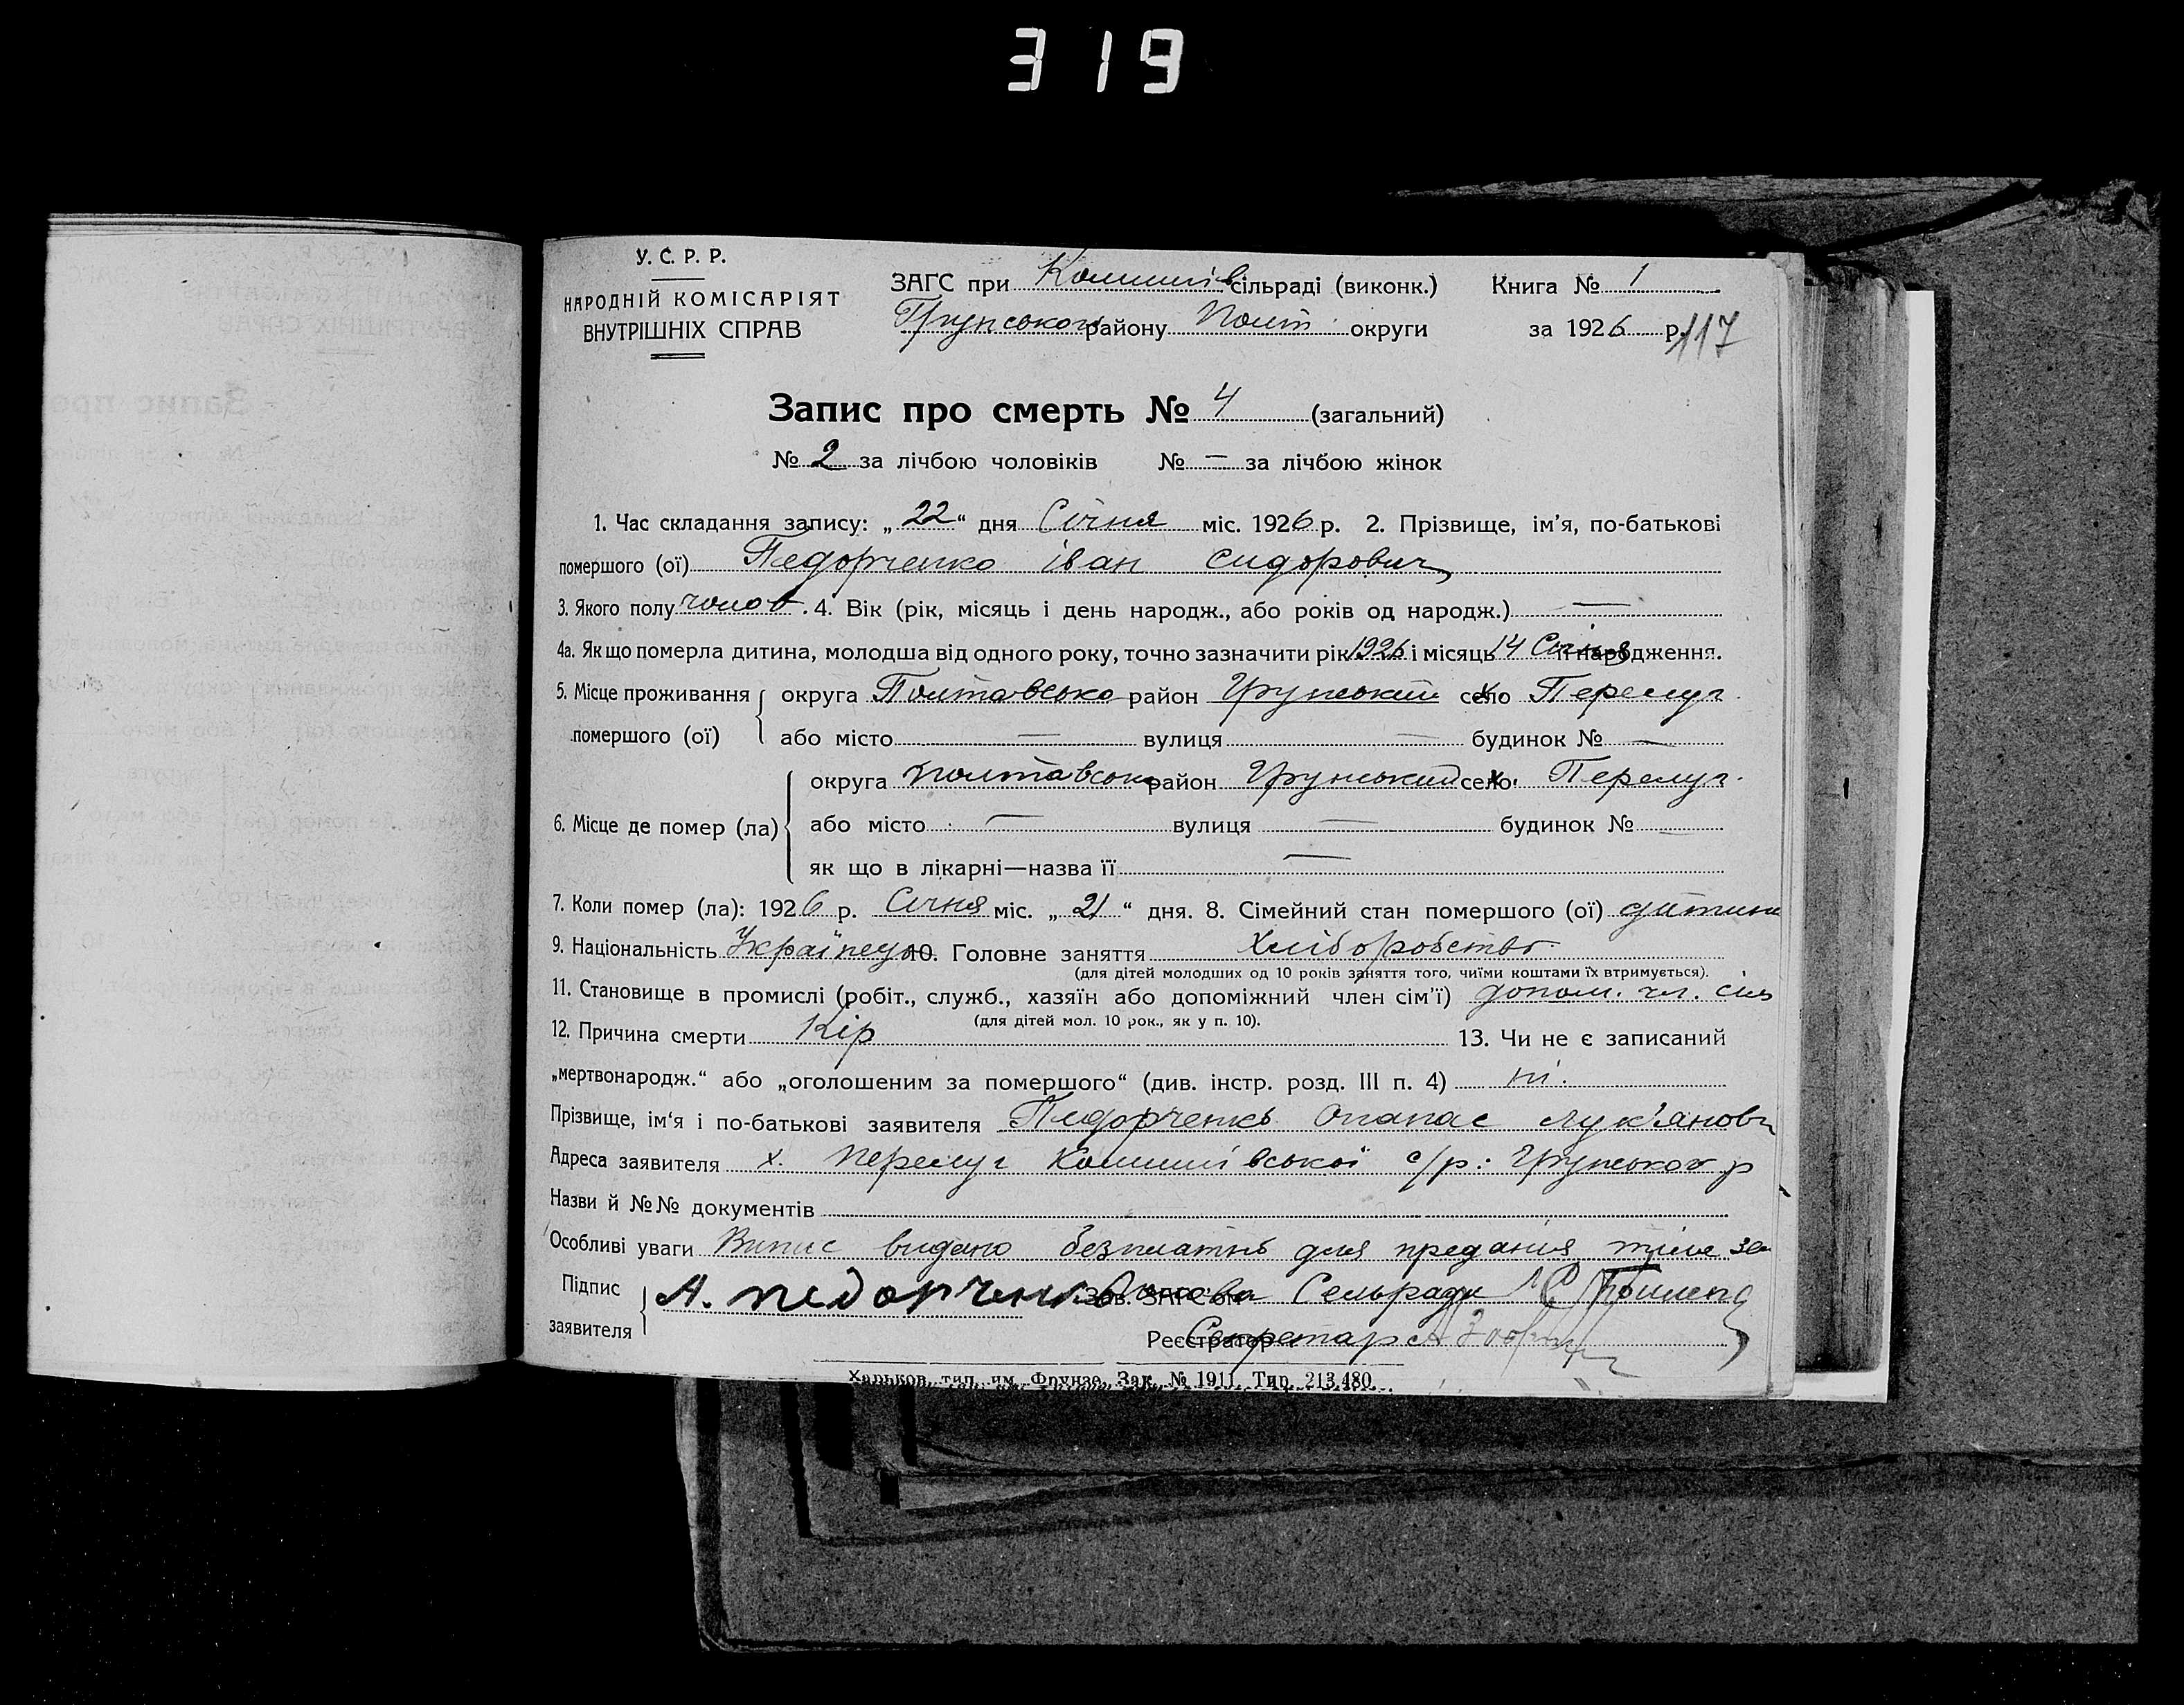 319
У. С. Р. Р.
НАРОДНІЙ КОМІСАРІЯТ
ВНУТРІШНІХ СПРАВ
ЗАГС при сільраді (виконк.) Книга № 1
Грунського району Полт. округи за 1926 р. 117
Запис про смерть № 4 (загальний)
№ 2 за лічбою чоловіків № — за лічбою жінок
1. Час складання запису: „22“ дня Січня міс. 1926 р. 2. Прізвище, ім'я, по-батькові
помершого (ої) Педорченко іван сидорович
3. Якого полу чолов. 4. Вік (рік, місяць і день народж., або років од народж.) —
4а. Як що померла дитина, молодша від одного року, точно зазначити рік 1926 і місяць 14 Січня народження.
5. Місце проживання помершого (ої) округа Полтавсько район Грунський село х Перелуг
або місто — вулиця — будинок № —
6. Місце де помер (ла) округа полтавсько район Грунський село х. Перелуг.
або місто — вулиця — будинок № —
як що в лікарні—назва її —
7. Коли помер (ла): 1926 р. Січня міс. „21“ дня. 8. Сімейний стан помершого (ої) дитина
9. Національність Українець 10. Головне заняття хліборобство
(для дітей молодших од 10 років заняття того, чиїми коштами їх втримується).
11. Становище в промислі (робіт., служб., хазяїн або допоміжний член сім'ї) допом. чл. сім
(для дітей мол. 10 рок., як у п. 10).
12. Причина смерти Кір 13. Чи не є записаний
„мертвонародж.“ або „оголошеним за помершого“ (див. інстр. розд. III п. 4) ні.
Прізвище, ім'я і по-батькові заявителя Педорченко Опанас лук'янови
Адреса заявителя х. перелуг с/р: Грунського р
Назви й №№ документів
Особливі уваги Випис видано безплатно для предания тіла зе
Підпис заявителя А. педорченко Зав. ЗАГСом Голова Сельради
Реєстратор Секретар
Харьков, тип. им. Фрунзе. Зак. № 1911. Тир. 213.480.